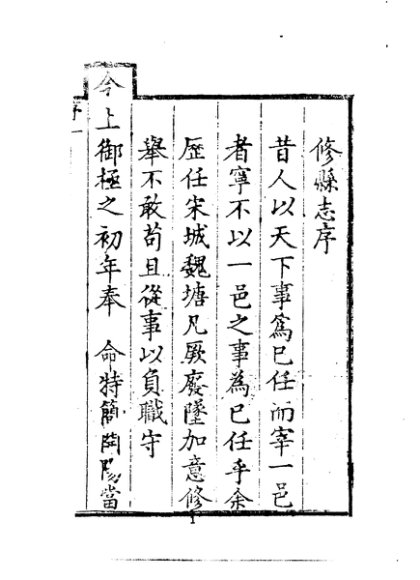 修縣志序
昔人以天下事為己任而宰一邑
者寧不以一邑之事為己任乎余
歷任宋城魏塘凡厥廢墜加意修
舉不敢苟且從事以負職守
今上御極之初年奉 命特簡開陽當
序一
1